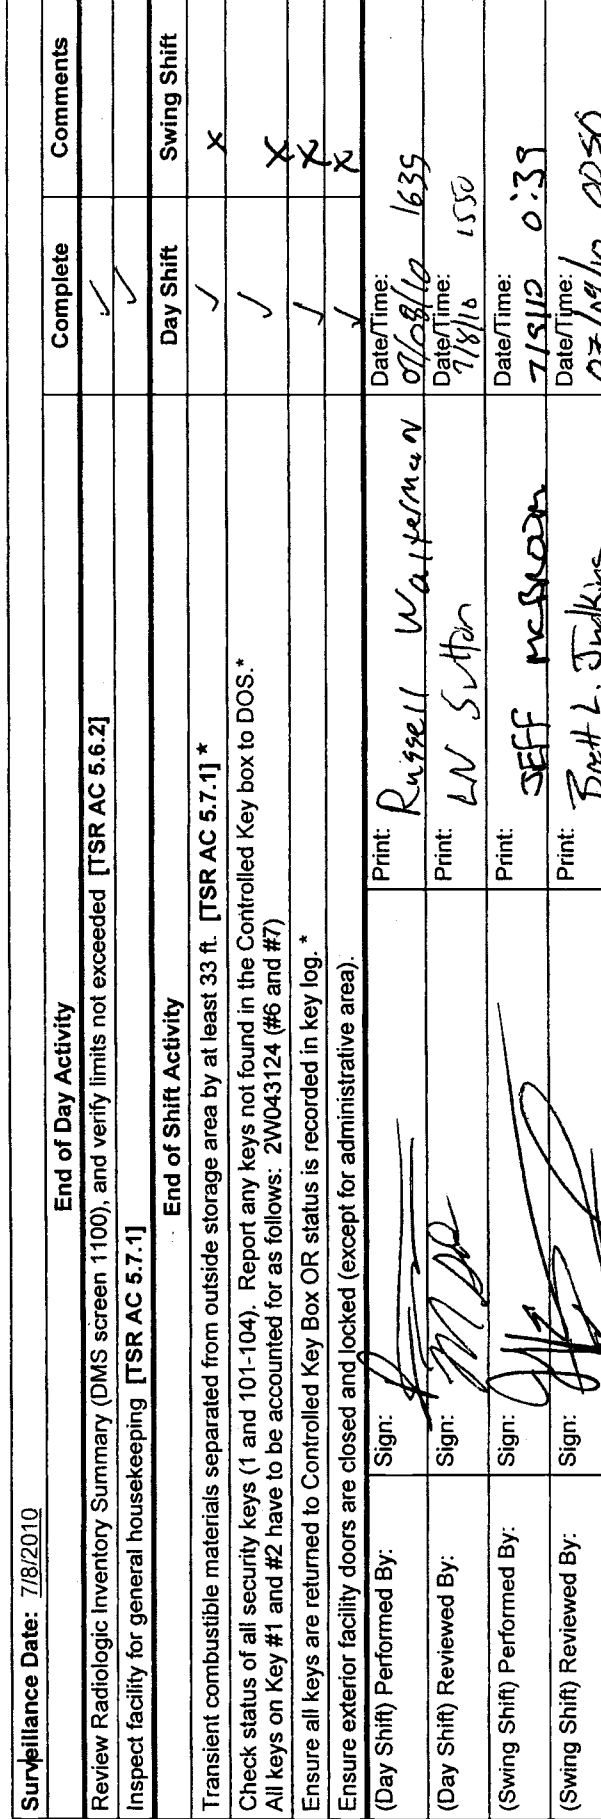 Surveillance Date: 7/8/2010
End of Day Activity Complete Comments
Review Radiologic Inventory Summary (DMS screen 1100), and verify limits not exceeded [TSR AC 5.6.2] ✓
Inspect facility for general housekeeping [TSR AC 5.7.1] ✓
End of Shift Activity Day Shift Swing Shift
Transient combustible materials separated from outside storage area by at least 33 ft. [TSR AC 5.7.1] * ✓ X
Check status of all security keys (1 and 101-104). Report any keys not found in the Controlled Key box to DOS.* ✓ X
All keys on Key #1 and #2 have to be accounted for as follows: 2W043124 (#6 and #7)
Ensure all keys are returned to Controlled Key Box OR status is recorded in key log. * ✓ X
Ensure exterior facility doors are closed and locked (except for administrative area). ✓ X
(Day Shift) Performed By: Sign: Print: Russell Walterman Date/Time: 07/08/10 1635
(Day Shift) Reviewed By: Sign: Print: LN Sutton Date/Time: 7/8/10 1550
(Swing Shift) Performed By: Sign: Print: JEFF McBROOM Date/Time: 7/9/10 0:39
(Swing Shift) Reviewed By: Sign: Print: Brett L. Judkins Date/Time: 07/09/10 0050